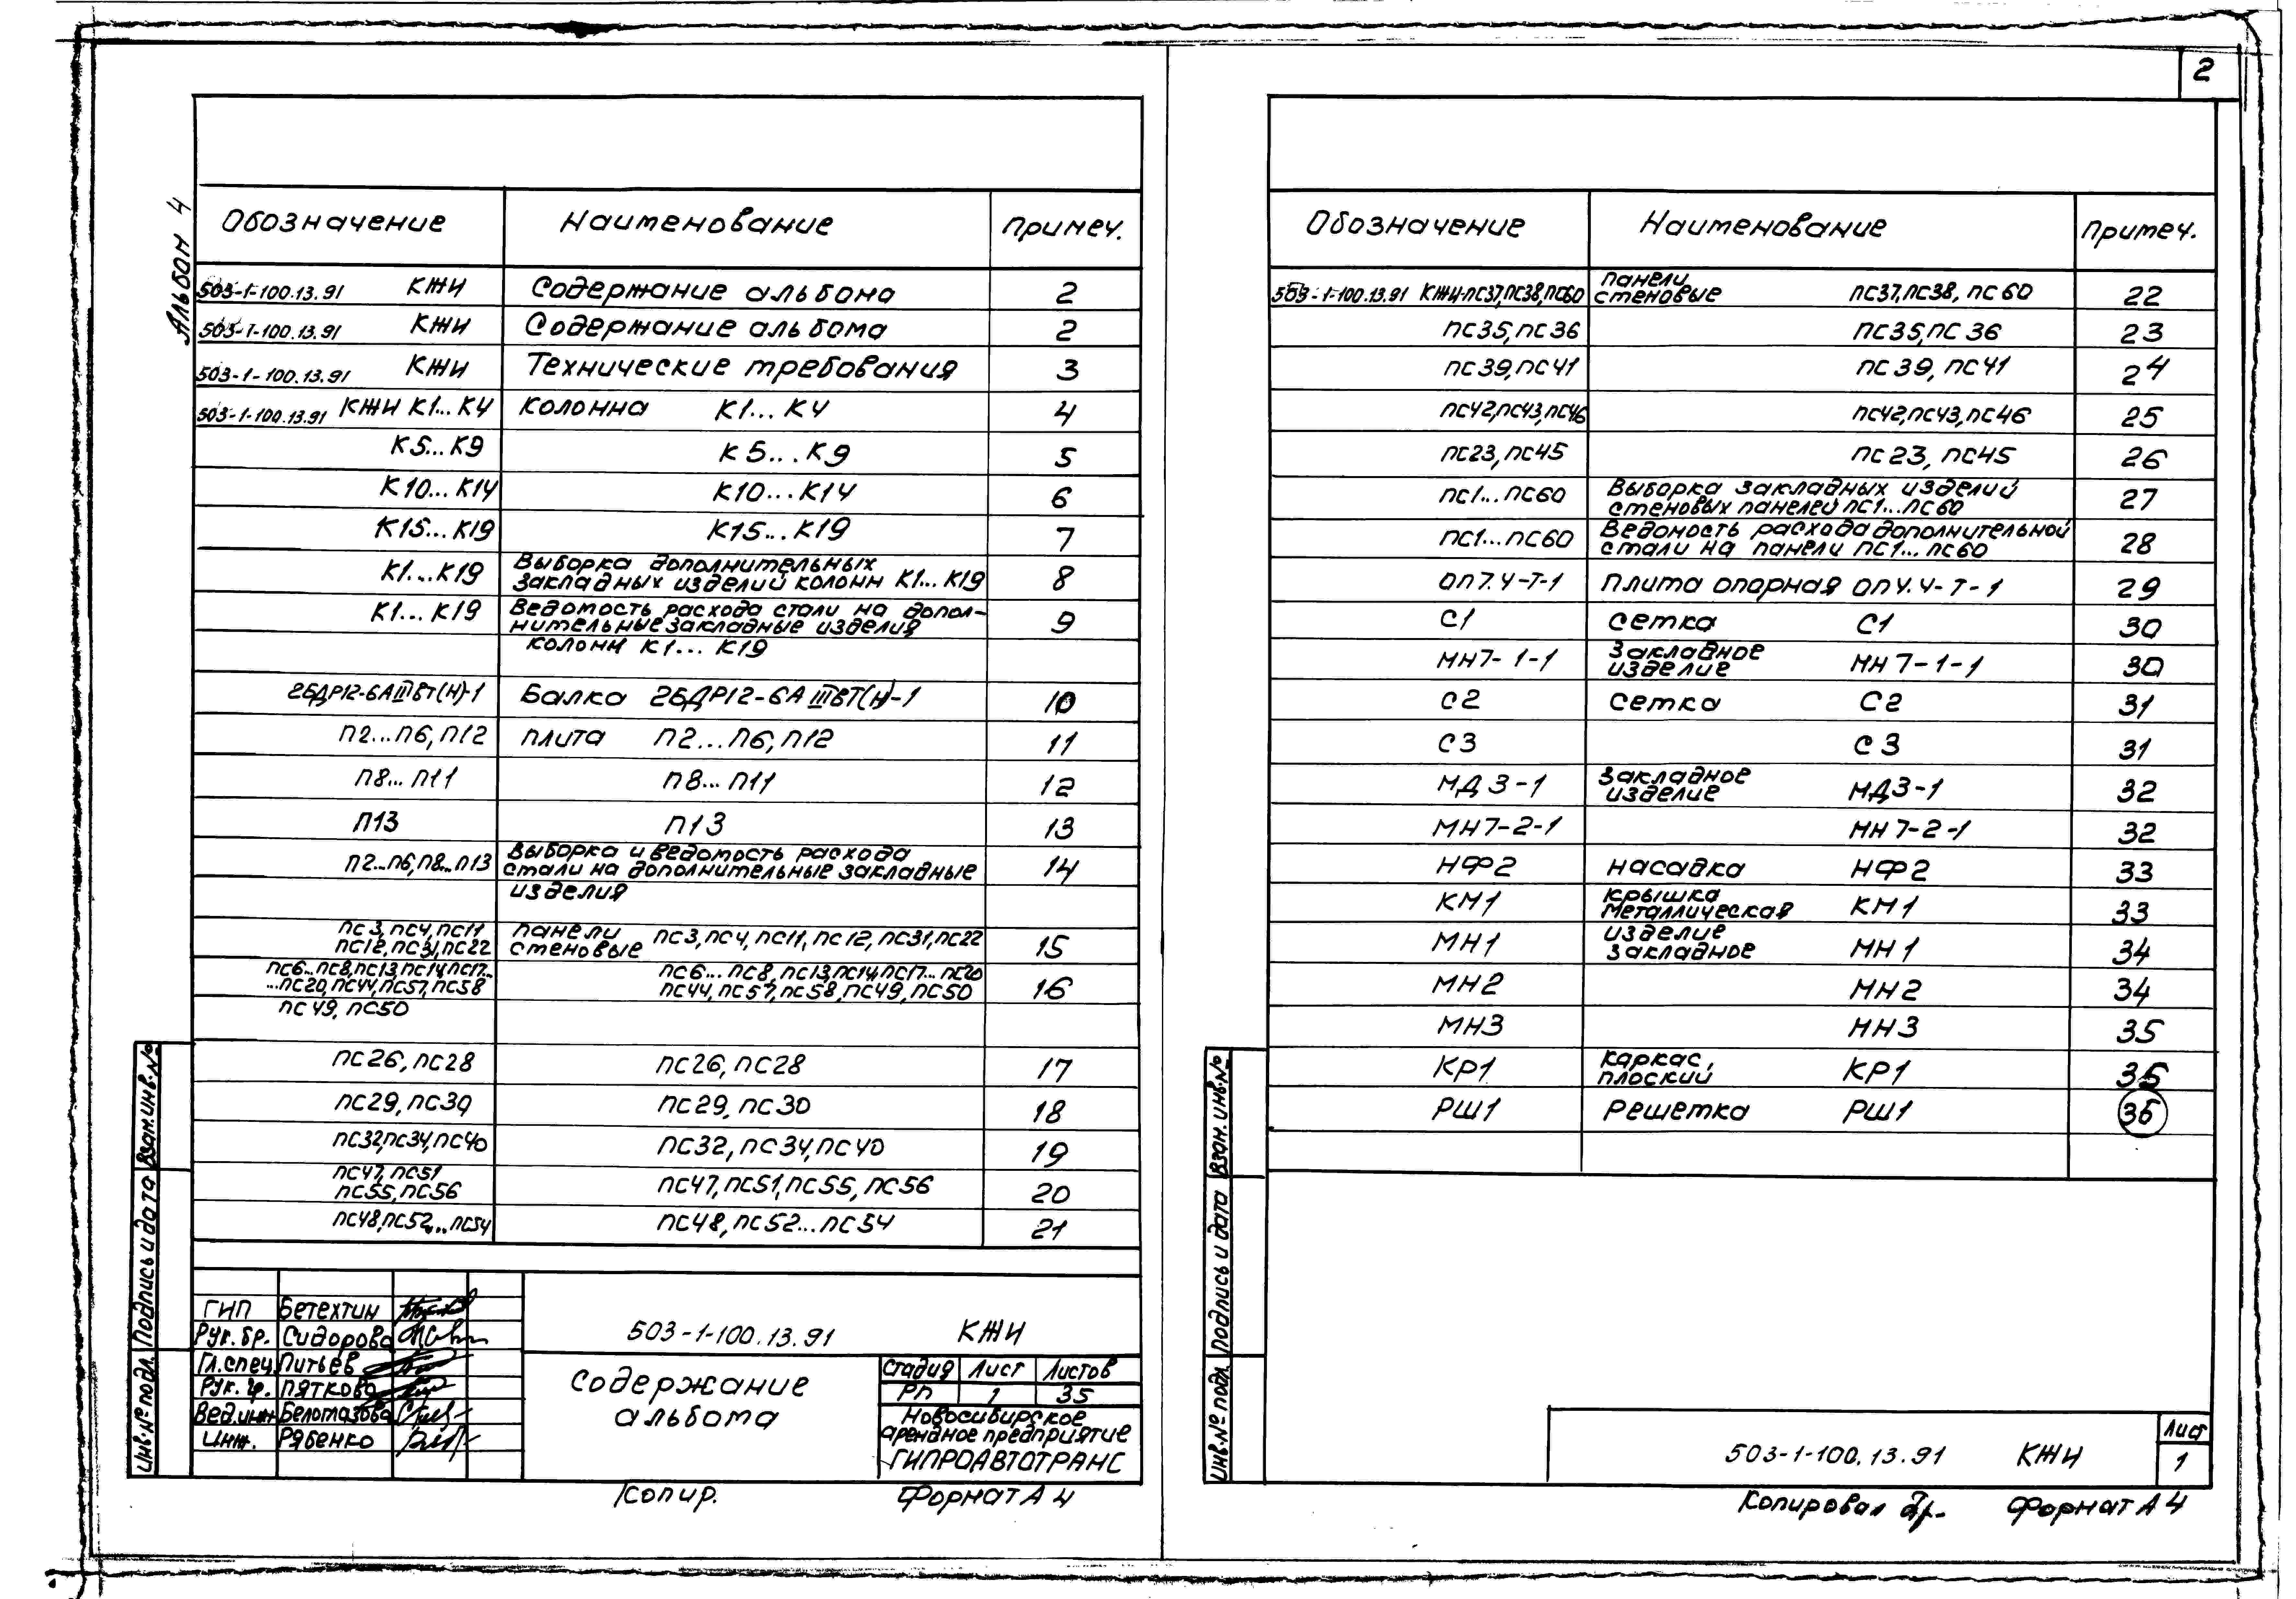 2
Альбом 4
Обозначение Наименование Примеч.
503-1-100.13.91 КЖИ Содержание альбома 2
503-1-100.13.91 КЖИ Содержание альбома 2
503-1-100.13.91 КЖИ Технические требования 3
503-1-100.13.91 КЖИ К1...К4 Колонна К1...К4 4
К5...К9 К5...К9 5
К10...К14 К10...К14 6
К15...К19 К15...К19 7
К1...К19 Выборка дополнительных
закладных изделий колонн К1...К19 8
К1...К19 Ведомость расхода стали на допол-
нительные закладные изделия 9
колонн К1...К19
2БДР12-6АIIIВТ(Н)-1 Балка 2БДР12-6АIIIВТ(Н)-1 10
П2...П6, П12 Плита П2...П6, П12 11
П8...П11 П8...П11 12
П13 П13 13
П2...П6, П8...П13 Выборка и ведомость расхода
стали на дополнительные закладные 14
изделия
ПС3, ПС4, ПС11 Панели
ПС12, ПС31, ПС22 стеновые ПС3, ПС4, ПС11, ПС12, ПС31, ПС22 15
ПС6...ПС8, ПС13, ПС14, ПС17... ПС6...ПС8, ПС13, ПС14, ПС17...ПС20
...ПС20, ПС44, ПС57, ПС58 ПС44, ПС57, ПС58, ПС49, ПС50 16
ПС49, ПС50
ПС26, ПС28 ПС26, ПС28 17
ПС29, ПС30 ПС29, ПС30 18
ПС32, ПС34, ПС40 ПС32, ПС34, ПС40 19
ПС47, ПС51
ПС55, ПС56 ПС47, ПС51, ПС55, ПС56 20
ПС48, ПС52...ПС54 ПС48, ПС52...ПС54 21
ГИП Бетехтин
Рук. бр. Сидорова
Гл. спец. Питьев
Рук. гр. Пяткова
Вед. инж. Беломазова
Инж. Рябенко
503-1-100.13.91 КЖИ
Содержание
альбома
Стадия Лист Листов
РП 1 35
Новосибирское
арендное предприятие
ГИПРОАВТОТРАНС
Взам. инв. №
Подпись и дата
Инв. № подл.
Копир. Формат А4
Обозначение Наименование Примеч.
503-1-100.13.91 КЖИ-ПС37, ПС38, ПС60 Панели
стеновые ПС37, ПС38, ПС60 22
ПС35, ПС36 ПС35, ПС36 23
ПС39, ПС41 ПС39, ПС41 24
ПС42, ПС43, ПС46 ПС42, ПС43, ПС46 25
ПС23, ПС45 ПС23, ПС45 26
ПС1...ПС60 Выборка закладных изделий
стеновых панелей ПС1...ПС60 27
ПС1...ПС60 Ведомость расхода дополнительной
стали на панели ПС1...ПС60 28
ОП7.4-Т-1 Плита опорная ОП4.4-Т-1 29
С1 Сетка С1 30
МН7-1-1 Закладное
изделие МН7-1-1 30
С2 Сетка С2 31
С3 С3 31
МД3-1 Закладное
изделие МД3-1 32
МН7-2-1 МН7-2-1 32
НФ2 Насадка НФ2 33
КМ1 Крышка
металлическая КМ1 33
МН1 Изделие
закладное МН1 34
МН2 МН2 34
МН3 МН3 35
КР1 Каркас
плоский КР1 35
РШ1 Решетка РШ1 36
Взам. инв. №
Подпись и дата
Инв. № подл.
503-1-100.13.91 КЖИ
Лист
1
Копировал Формат А4